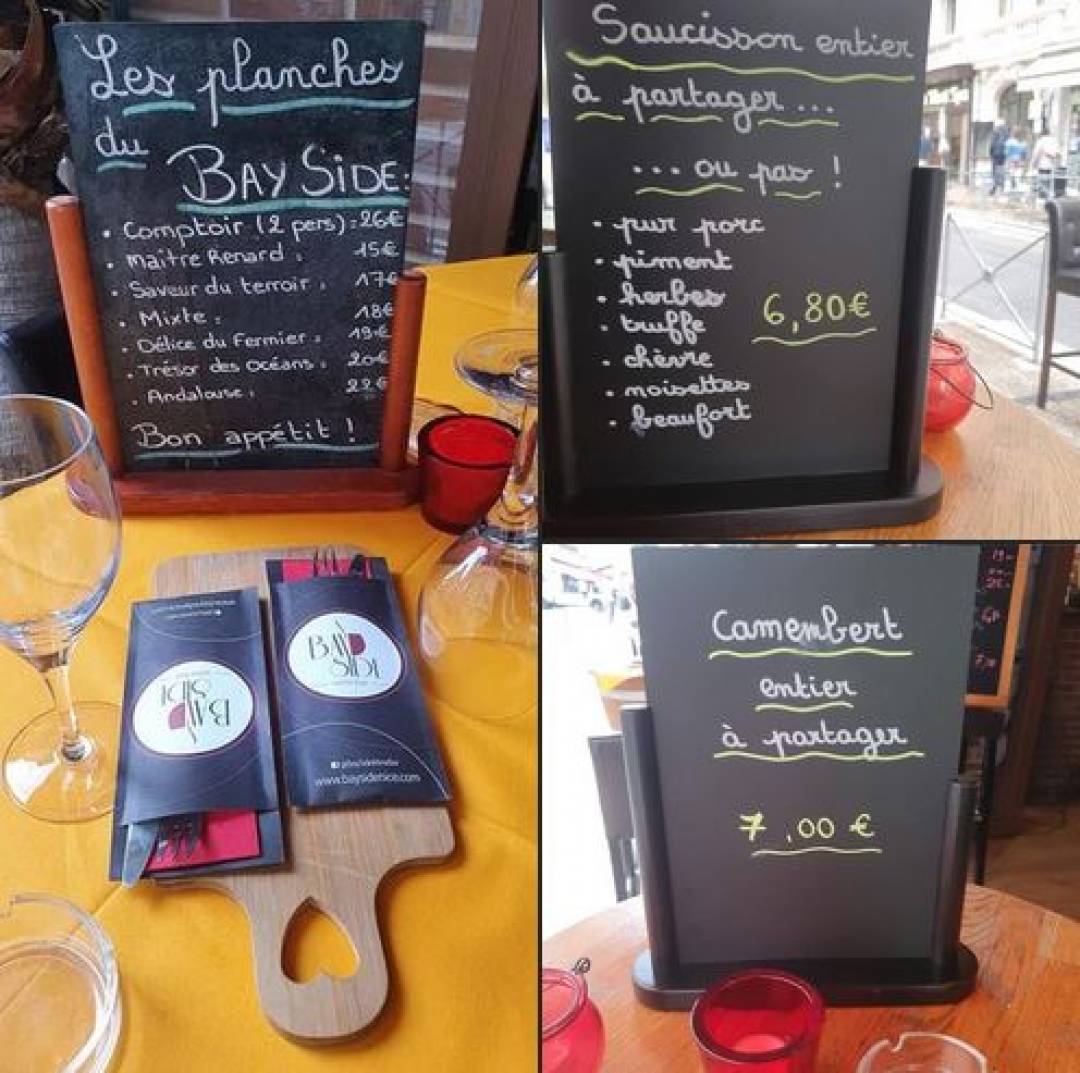 Les planches
du
BAY SIDE:
• Comptoir (2 pers) : 26€
• Maître Renard : 15€
• Saveur du terroir : 17€
• Mixte : 18€
• Délice du Fermier : 19€
• Trésor des Océans : 20€
• Andalouse : 22€
Bon appétit !
BAY
SIDE
BAY
SIDE
www.baysidenice.com
Saucisson entier
à partager ...
... ou pas !
• pur porc
• piment
• herbes
• truffe
• chèvre
• noisettes
• beaufort
6,80€
Camembert
entier
à partager
7,00 €